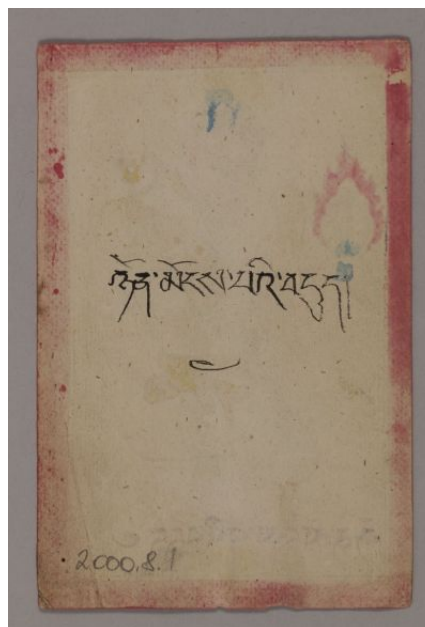 ཉོན་མོངས་པའི་བདུད།
2000.8.1